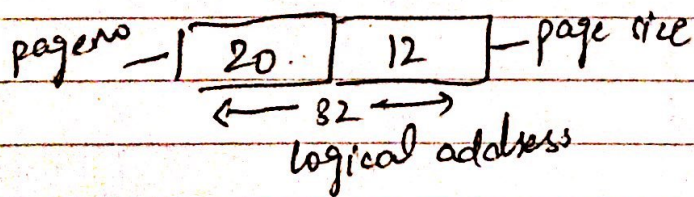 pageno 20 12 page size
32
logical address